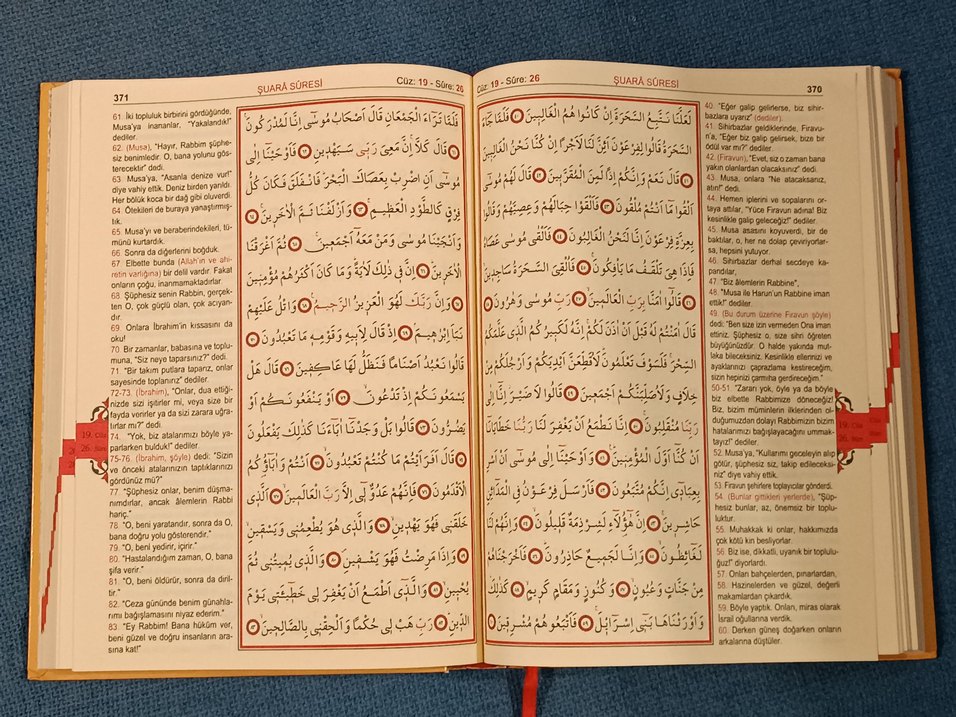 ŞUARÂ SÛRESİ
Cüz: 19 - Sûre: 26
370
لَعَلَّنَا نَتَّبِعُ السَّحَرَةَ اِنْ كَانُوا هُمُ الْغَالِبِينَ ﴿٤٠﴾ فَلَمَّا جَاءَ
السَّحَرَةُ قَالُوا لِفِرْعَوْنَ اَئِنَّ لَنَا لَاَجْرًا اِنْ كُنَّا نَحْنُ الْغَالِبِينَ
﴿٤١﴾ قَالَ نَعَمْ وَاِنَّكُمْ اِذًا لَمِنَ الْمُقَرَّبِينَ ﴿٤٢﴾ قَالَ لَهُمْ مُوسَى
اَلْقُوا مَا اَنْتُمْ مُلْقُونَ ﴿٤٣﴾ فَاَلْقَوْا حِبَالَهُمْ وَعِصِيَّهُمْ وَقَالُوا
بِعِزَّةِ فِرْعَوْنَ اِنَّا لَنَحْنُ الْغَالِبُونَ ﴿٤٤﴾ فَاَلْقَى مُوسَى عَصَاهُ
فَاِذَا هِيَ تَلْقَفُ مَا يَاْفِكُونَ ﴿٤٥﴾ فَاُلْقِيَ السَّحَرَةُ سَاجِدِينَ
﴿٤٦﴾ قَالُوا اٰمَنَّا بِرَبِّ الْعَالَمِينَ ﴿٤٧﴾ رَبِّ مُوسَى وَهٰرُونَ ﴿٤٨﴾
قَالَ اٰمَنْتُمْ لَهُ قَبْلَ اَنْ اٰذَنَ لَكُمْ اِنَّهُ لَكَبِيرُكُمُ الَّذِي عَلَّمَكُمُ
السِّحْرَ فَلَسَوْفَ تَعْلَمُونَ لَاُقَطِّعَنَّ اَيْدِيَكُمْ وَاَرْجُلَكُمْ مِنْ
خِلَافٍ وَلَاُصَلِّبَنَّكُمْ اَجْمَعِينَ ﴿٤٩﴾ قَالُوا لَا ضَيْرَ اِنَّا اِلَى
رَبِّنَا مُنْقَلِبُونَ ﴿٥٠﴾ اِنَّا نَطْمَعُ اَنْ يَغْفِرَ لَنَا رَبُّنَا خَطَايَانَا
اَنْ كُنَّا اَوَّلَ الْمُؤْمِنِينَ ﴿٥١﴾ وَاَوْحَيْنَا اِلَى مُوسَى اَنْ اَسْرِ
بِعِبَادِي اِنَّكُمْ مُتَّبَعُونَ ﴿٥٢﴾ فَاَرْسَلَ فِرْعَوْنُ فِي الْمَدَائِنِ
حَاشِرِينَ ﴿٥٣﴾ اِنَّ هٰؤُلَاءِ لَشِرْذِمَةٌ قَلِيلُونَ ﴿٥٤﴾ وَاِنَّهُمْ لَنَا
لَغَائِظُونَ ﴿٥٥﴾ وَاِنَّا لَجَمِيعٌ حَاذِرُونَ ﴿٥٦﴾ فَاَخْرَجْنَاهُمْ
مِنْ جَنَّاتٍ وَعُيُونٍ ﴿٥٧﴾ وَكُنُوزٍ وَمَقَامٍ كَرِيمٍ ﴿٥٨﴾ كَذٰلِكَ
وَاَوْرَثْنَاهَا بَنِي اِسْرَائِيلَ ﴿٥٩﴾ فَاَتْبَعُوهُمْ مُشْرِقِينَ ﴿٦٠﴾
40. "Eğer galip gelirlerse, biz sihir-
bazlara uyarız" (dediler).
41. Sihirbazlar geldiklerinde, Firavu-
n'a, "Eğer biz galip gelirsek, bize bir
ödül var mı?" dediler.
42. (Firavun), "Evet, siz o zaman bana
yakın olanlardan olacaksınız" dedi.
43. Musa, onlara "Ne atacaksanız,
atın!" dedi.
44. Hemen iplerini ve sopalarını or-
taya attılar, "Yüce Firavun adına! Biz
kesinlikle galip geleceğiz!" dediler.
45. Musa asasını koyuverdi, bir de
baktılar, o, her ne dolap çeviriyorlar-
sa, hepsini yutuyor.
46. Sihirbazlar derhal secdeye ka-
pandılar,
47. "Biz âlemlerin Rabbine",
48. "Musa ile Harun'un Rabbine iman
ettik!" dediler.
49. (Bu durum üzerine Firavun şöyle)
dedi: "Ben size izin vermeden Ona iman
ettiniz. Şüphesiz o, size sihri öğreten
büyüğünüzdür. O halde yakında mut-
laka bileceksiniz. Kesinlikle ellerinizi ve
ayaklarınızı çaprazlama kestireceğim,
sizin hepinizi çarmıha gerdireceğim."
50-51. "Zararı yok, öyle ya da böyle
biz elbette Rabbimize döneceğiz!
Biz, bizim müminlerin ilklerinden ol-
duğumuzdan dolayı Rabbimizin bizim
hatalarımızı bağışlayacağını ummak-
tayız!" dediler.
52. Musa'ya, "Kullarımı geceleyin alıp
götür, şüphesiz siz, takip edilecek-
siniz" diye vahiy ettik.
53. Firavun şehirlere toplayıcılar gönderdi.
54. (Bunlar gittikleri yerlerde), "Şüp-
hesiz bunlar, az, önemsiz bir toplu-
luktur.
55. Muhakkak ki onlar, hakkımızda
çok kötü kin besliyorlar.
56. Biz ise, dikkatli, uyanık bir toplulu-
ğuz!" diyorlardı.
57. Onları bahçelerden, pınarlardan,
58. Hazinelerden ve güzel, değerli
makamlardan çıkardık.
59. Böyle yaptık. Onları, miras olarak
İsrail oğullarına verdik.
60. Derken güneş doğarken onların
arkalarına düştüler.
19. Cüz
26. Sûre
371
ŞUARÂ SÛRESİ
Cüz: 19 - Sûre: 26
فَلَمَّا تَرَاءَ الْجَمْعَانِ قَالَ اَصْحَابُ مُوسَى اِنَّا لَمُدْرَكُونَ
﴿٦١﴾ قَالَ كَلَّا اِنَّ مَعِيَ رَبِّي سَيَهْدِينِ ﴿٦٢﴾ فَاَوْحَيْنَا اِلَى
مُوسَى اَنِ اضْرِبْ بِعَصَاكَ الْبَحْرَ فَانْفَلَقَ فَكَانَ كُلُّ
فِرْقٍ كَالطَّوْدِ الْعَظِيمِ ﴿٦٣﴾ وَاَزْلَفْنَا ثَمَّ الْاٰخَرِينَ ﴿٦٤﴾
وَاَنْجَيْنَا مُوسَى وَمَنْ مَعَهُ اَجْمَعِينَ ﴿٦٥﴾ ثُمَّ اَغْرَقْنَا
الْاٰخَرِينَ ﴿٦٦﴾ اِنَّ فِي ذٰلِكَ لَاٰيَةً وَمَا كَانَ اَكْثَرُهُمْ مُؤْمِنِينَ
﴿٦٧﴾ وَاِنَّ رَبَّكَ لَهُوَ الْعَزِيزُ الرَّحِيمُ ﴿٦٨﴾ وَاتْلُ عَلَيْهِمْ
نَبَاَ اِبْرٰهِيمَ ﴿٦٩﴾ اِذْ قَالَ لِاَبِيهِ وَقَوْمِهِ مَا تَعْبُدُونَ ﴿٧٠﴾
قَالُوا نَعْبُدُ اَصْنَامًا فَنَظَلُّ لَهَا عَاكِفِينَ ﴿٧١﴾ قَالَ هَلْ
يَسْمَعُونَكُمْ اِذْ تَدْعُونَ ﴿٧٢﴾ اَوْ يَنْفَعُونَكُمْ اَوْ
يَضُرُّونَ ﴿٧٣﴾ قَالُوا بَلْ وَجَدْنَا اٰبَاءَنَا كَذٰلِكَ يَفْعَلُونَ
﴿٧٤﴾ قَالَ اَفَرَاَيْتُمْ مَا كُنْتُمْ تَعْبُدُونَ ﴿٧٥﴾ اَنْتُمْ وَاٰبَاؤُكُمُ
الْاَقْدَمُونَ ﴿٧٦﴾ فَاِنَّهُمْ عَدُوٌّ لِي اِلَّا رَبَّ الْعَالَمِينَ ﴿٧٧﴾ اَلَّذِي
خَلَقَنِي فَهُوَ يَهْدِينِ ﴿٧٨﴾ وَالَّذِي هُوَ يُطْعِمُنِي وَيَسْقِينِ
﴿٧٩﴾ وَاِذَا مَرِضْتُ فَهُوَ يَشْفِينِ ﴿٨٠﴾ وَالَّذِي يُمِيتُنِي ثُمَّ
يُحْيِينِ ﴿٨١﴾ وَالَّذِي اَطْمَعُ اَنْ يَغْفِرَ لِي خَطِيئَتِي يَوْمَ
الدِّينِ ﴿٨٢﴾ رَبِّ هَبْ لِي حُكْمًا وَاَلْحِقْنِي بِالصَّالِحِينَ ﴿٨٣﴾
61. İki topluluk birbirini gördüğünde,
Musa'ya inananlar, "Yakalandık!"
dediler.
62. (Musa), "Hayır, Rabbim şüphe-
siz benimledir. O, bana yolunu gös-
terecektir" dedi.
63. Musa'ya, "Asanla denize vur!"
diye vahiy ettik. Deniz birden yarıldı.
Her bölük koca bir dağ gibi oluverdi.
64. Ötekileri de buraya yanaştırmış-
tık.
65. Musa'yı ve beraberindekileri, tü-
münü kurtardık.
66. Sonra da diğerlerini boğduk.
67. Elbette bunda (Allah'ın ve ahi-
retin varlığına) bir delil vardır. Fakat
onların çoğu, inanmamaktadırlar.
68. Şüphesiz senin Rabbin, gerçek-
ten O, çok güçlü olan, çok acıyan-
dır.
69. Onlara İbrahim'in kıssasını da
oku!
70. Bir zamanlar, babasına ve toplu-
muna, "Siz neye taparsınız?" dedi.
71. "Bir takım putlara taparız, onlar
sayesinde toplanırız" dediler.
72-73. (İbrahim), "Onlar, dua ettiği-
nizde sizi işitirler mi, veya size bir
fayda verirler ya da sizi zarara uğra-
tırlar mı?" dedi.
74. "Yok, biz atalarımızı böyle ya-
parlarken bulduk!" dediler.
75-76. (İbrahim, şöyle) dedi: "Sizin
ve önceki atalarınızın taptıklarınızı
gördünüz mü?"
77. "Şüphesiz onlar, benim düşma-
nımdırlar, ancak âlemlerin Rabbi
hariç."
78. "O, beni yaratandır, sonra da O,
bana doğru yolu gösterendir."
79. "O, beni yedirir, içirir."
80. "Hastalandığım zaman, O, bana
şifa verir."
81. "O, beni öldürür, sonra da diril-
tir."
82. "Ceza gününde benim günahla-
rımı bağışlamasını niyaz ederim."
83. "Ey Rabbim! Bana hüküm ver,
beni güzel ve doğru insanların ara-
sına kat!"
19. Cüz
26. Sûre